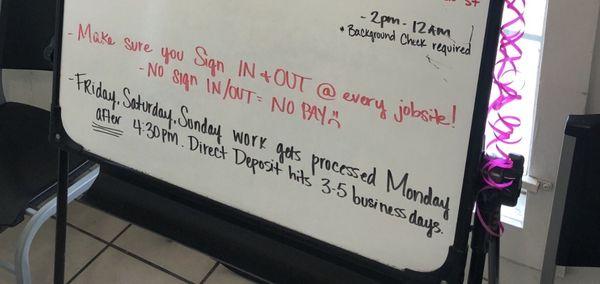 - 2pm - 12AM
* Background Check required
- Make sure you Sign IN + OUT @ every jobsite!
- No sign IN/OUT = NO PAY
- Friday, Saturday, Sunday work gets processed Monday
after 4:30pm. Direct Deposit hits 3-5 business days.